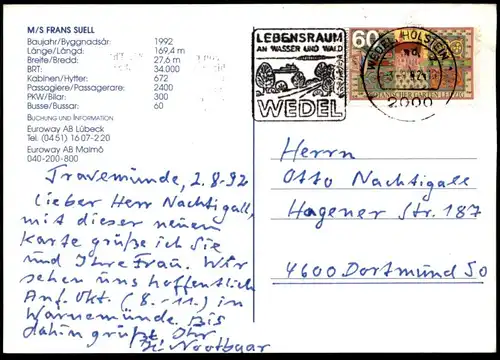 M/S FRANS SUELL
Baujahr/Byggnadsår: 1992
Länge/Längd: 169,4 m
Breite/Bredd: 27,6 m
BRT: 34.000
Kabinen/Hytter: 672
Passagiere/Passagerare: 2400
PKW/Bilar: 300
Busse/Bussar: 60
BUCHUNG UND INFORMATION
Euroway AB Lübeck
Tel. (04 51) 16 07-2 20
Euroway AB Malmö
040-200-800
LEBENSRAUM
AN WASSER UND WALD
WEDEL
60
WEDEL, HOLSTEIN
2000
BOTANISCHER GARTEN LEIPZIG
Travemünde, 2.8.92
Lieber Herr Nachtigall,
mit dieser neuen
Karte grüße ich Sie
und Ihre Frau. Wir
sehen uns hoffentlich
Anf. Okt. (8.-11.) in
Warnemünde. Bis
dahin grüßt Ihr
Nootbaar
Herrn
Otto Nachtigall
Hagener Str. 187
4600 Dortmund 50